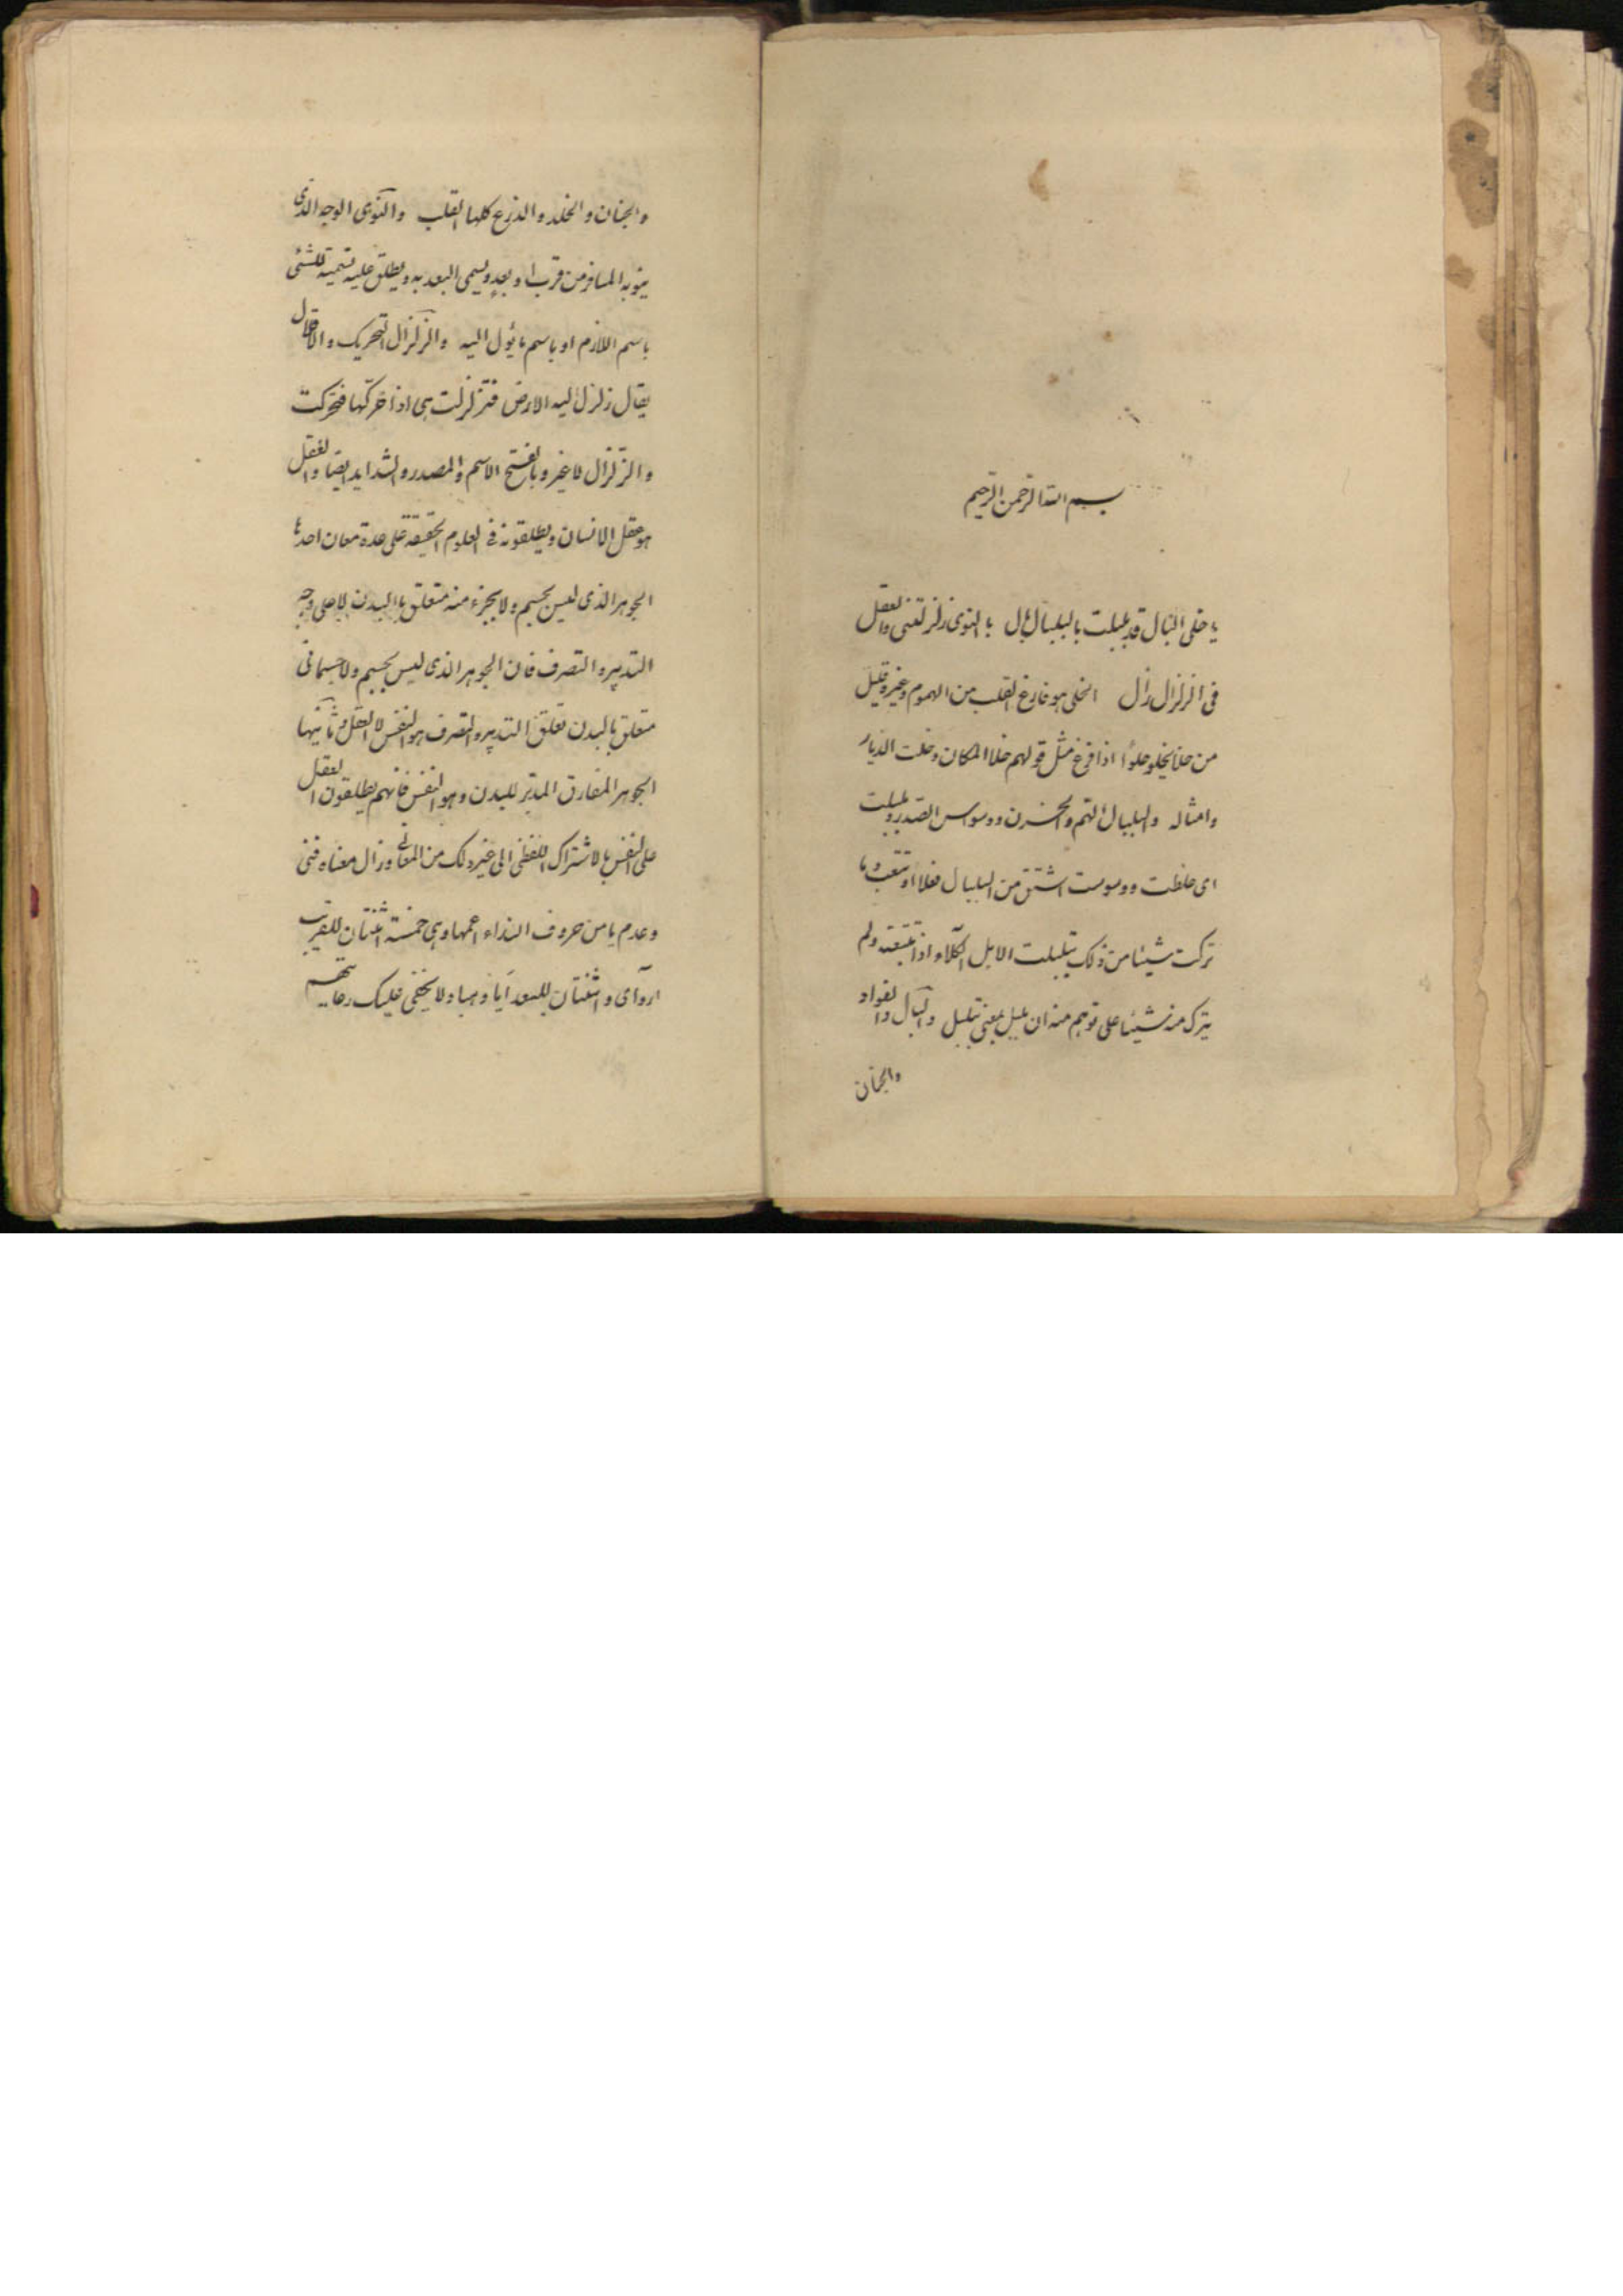 بسم الله الرحمن الرحيم
يا خلي البال قد بلبلت بالبلبال بال بالنوى زلزلتني والعقل
في الزلزال زال الخلي هو فارغ القلب من الهموم وغيره قيل
من خلا يخلو خلوا اذا فرغ مثل قولهم خلا المكان وخلت الديار
وامثاله والبلبال الهم والحزن ووسواس الصدر وبلبلت
اى خلطت ووسوست اشتق من البلبال فعلا او تتعب وما
تركت شيئا من ذلك يتبلبلت الابل الكلاء اذا تتبعته ولم
يترك منه شيئا على توهم منه ان بلبل بمعنى تبلبل والبال والفواد
والجنان
والجنان والخلد والذرع كلها القلب والنوى الوجه الذى
ينويه المسافر من قرب او بعد ويسمى البعد به ويطلق عليه تسمية للشئى
باسم اللازم او باسم ما يؤل اليه والزلزال التحريك و
يقال زلزل اليه الارض فتزلزلت هى اذا حركها فتحركت
والزلزال لا غير وبالفتح الاسم والمصدر والشدايد ايضا والعقل
هو عقل الانسان ويطلقونه فى العلوم الحقيقة على عدة معان احدها
الجوهر الذى ليس بجسم ولا بجزء منه متعلق بالبدن لا على وجه
التدبير والتصرف فان الجوهر الذى ليس بجسم ولا جسمانى
متعلق بالبدن تعلق التدبير والتصرف هو النفس لا العقل وثانيها
الجوهر المفارق المدبر للبدن وهو النفس فانهم يطلقون العقل
على النفس بالاشتراك اللفظى الى غير ذلك من المعانى وزال معناه فنى
وعدم يا من حروف النداء اعمها وهى خمسة اثنتان للقريب
ا و آى واثنتان للبعد ايا وهيا ولا يخفى عليك